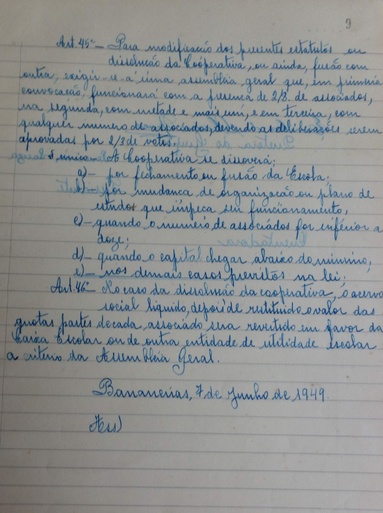 9
Art. 45º - Para modificação dos presentes estatutos ou
dissolução da Cooperativa, ou ainda, fusão com
outra, exigir-se-á uma assembleia geral que, em primeira
convocação, funcionará com a presença de 2/3 de associados,
na segunda, com metade e mais um, e em terceira, com
qualquer numero de associados, devendo as deliberações serem
aprovadas por 2/3 de votos.
§ único - A Cooperativa se dissoverá:
a) - por fechamento ou fusão da Escola;
b) - por mudança de organização ou plano de
estudos que impeça seu funcionamento,
c) - quando o numero de associados for inferior a
doze;
d) - quando o capital chegar abaixo do minimo,
e) - nos demais casos previstos na lei;
Art. 46º - No caso da dissolução da cooperativa, o acervo
social liquido, depois de restituido o valor das
quotas partes de cada associado será revertido em favor da
Caixa Escolar ou de outra entidade de utilidade escolar
a critério da Assembléia Geral.
Bananeiras, 7 de Junho de 1949